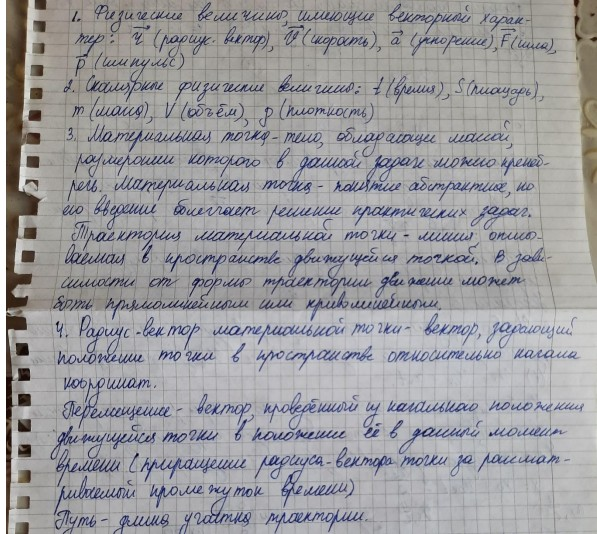 1. Физические величины, имеющие векторный харак-
тер: r⃗ (радиус-вектор), v⃗ (скорость), a⃗ (ускорение), F⃗ (сила),
p⃗ (импульс)
2. Скалярные физические величины: t (время), S (площадь),
m (масса), V (объём), ρ (плотность)
3. Материальная точка - тело, обладающее массой,
размерами которого в данной задаче можно преneб-
речь. Материальная точка - понятие абстрактное, но
его введение облегчает решение практических задач.
Траектория материальной точки - линия, описы-
ваемая в пространстве движущейся точкой. В зави-
симости от формы траектории движение может
быть прямолинейным или криволинейным.
4. Радиус-вектор материальной точки - вектор, задающий
положение точки в пространстве относительно начала
координат.
Перемещение - вектор, проведённый из начального положения
движущейся точки в положение её в данный момент
времени (приращение радиуса-вектора точки за рассмат-
риваемый промежуток времени)
Путь - длина участка траектории.